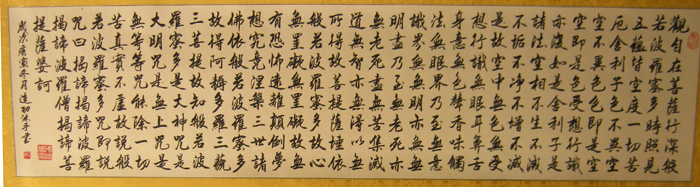 觀自在菩薩行深般
若波羅蜜多時照見
五蘊皆空度一切苦
厄舍利子色不異空
空不異色色即是空
空即是色受想行識
亦復如是舍利子是
諸法空相不生不滅
不垢不淨不增不減
是故空中無色無受
想行識無眼耳鼻舌
身意無色聲香味觸
法無眼界乃至無意
識界無無明亦無無
明盡乃至無老死亦
無老死盡無苦集滅
道無智亦無得以無
所得故菩提薩埵依
般若波羅蜜多故心
無罣礙無罣礙故無
有恐怖遠離顛倒夢
想究竟涅槃三世諸
佛依般若波羅蜜多
故得阿耨多羅三藐
三菩提故知般若波
羅蜜多是大神咒是
大明咒是無上咒是
無等等咒能除一切
苦真實不虛故說般
若波羅蜜多咒即說
咒曰揭諦揭諦波羅
揭諦波羅僧揭諦菩
提薩婆訶
歲次庚寅冬月沐手書